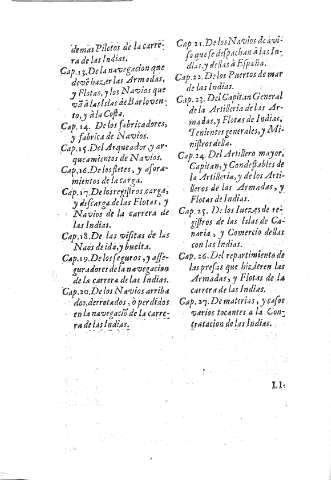 demas Pilotos de la carre-
ra de las Indias.
Cap. 13. De la navegacion que
deve hazer las Armadas,
y Flotas, y los Navios que
vã à las Islas de Barloven-
to, y à la Costa.
Cap. 14. De los fabricadores,
y fabrica de Navios.
Cap. 15. Del Arqueador, y ar-
queamientos de Navios.
Cap. 16. De los fletes, y afora-
mientos de la carga.
Cap. 17. De los registros, carga,
y descarga de las Flotas, y
Navios de la carrera de
las Indias.
Cap. 18. De las visitas de las
Naos de ida, y buelta.
Cap. 19. De los seguros, y asse-
guradores de la navegacion
de la carrera de las Indias.
Cap. 20. De los Navios arriba
dos, derrotados, ò perdidos
en la navegaciõ de la carre-
ra de las Indias.
Cap. 21. De los Navios de avi-
so que se despachan à las In-
dias, y dellas à España.
Cap. 22. De los Puertos de mar
de las Indias.
Cap. 23. Del Capitan General
de la Artilleria de las Ar-
madas, y Flotas de Indias,
Tenientes generales, y Mi-
nistros della.
Cap. 24. Del Artillero mayor,
Capitan, y Condestables de
la Artilleria, y de los Arti-
lleros de las Armadas, y
Flotas de Indias.
Cap. 25. De los Iuezes de re-
gistros de las Islas de Ca-
naria, y Comercio dellas
con las Indias.
Cap. 26. Del repartimiento de
las presas que hizieren las
Armadas, y Flotas de la
carrera de las Indias.
Cap. 27. De materias, y casos
varios tocantes a la Con-
tratacion de las Indias.
LI-